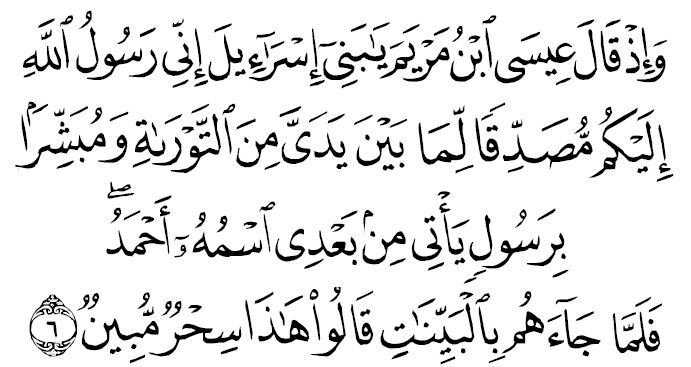 وَإِذْ قَالَ عِيسَى ٱبْنُ مَرْيَمَ يَـٰبَنِىٓ إِسْرَٰٓءِيلَ إِنِّى رَسُولُ ٱللَّهِ
إِلَيْكُم مُّصَدِّقًا لِّمَا بَيْنَ يَدَىَّ مِنَ ٱلتَّوْرَىٰةِ وَمُبَشِّرًۢا
بِرَسُولٍ يَأْتِى مِنۢ بَعْدِى ٱسْمُهُۥٓ أَحْمَدُ ۖ
فَلَمَّا جَآءَهُم بِٱلْبَيِّنَـٰتِ قَالُوا۟ هَـٰذَا سِحْرٌ مُّبِينٌ ٦